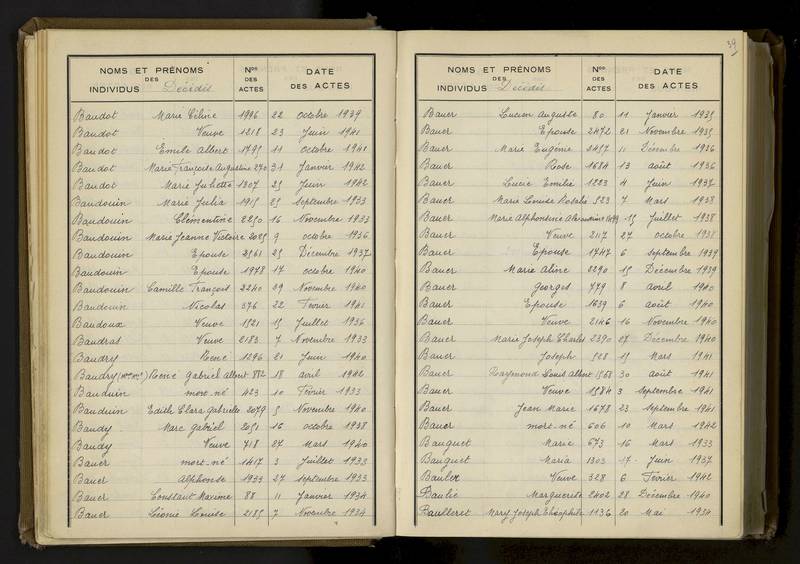 NOMS ET PRÉNOMS
DES
INDIVIDUS Décédés
Nos
DES
ACTES
DATE
DES ACTES
Baudot Marie Céline 1996 22 octobre 1939
Baudot Veuve 1218 23 Juin 1941
Baudot Emile Albert 1795 11 octobre 1941
Baudot Marie Françoise Augustine 270 31 Janvier 1942
Baudot Marie Juliette 1307 25 Juin 1942
Baudouin Marie Julia 1915 25 Septembre 1933
Baudouin Clémentine 2250 16 Novembre 1933
Baudouin Marie Jeanne Victoire 2025 9 octobre 1936
Baudouin Epouse 2561 25 Décembre 1937
Baudouin Epouse 1978 17 octobre 1940
Baudouin Camille François 2240 29 Novembre 1940
Baudouin Nicolas 376 22 Fevrier 1941
Baudoux Veuve 1521 15 Juillet 1936
Baudras Veuve 2183 7 Novembre 1933
Baudry René 1296 21 Juin 1940
Baudry René Gabriel Albert 872 18 avril 1942
Bauduin mort-né 423 10 Février 1933
Bauduin Edith Clara Gabrielle 2079 5 Novembre 1940
Baudy Marc Gabriel 2051 16 octobre 1938
Baudy Veuve 718 27 Mars 1940
Bauer mort-né 1417 3 Juillet 1933
Bauer Alphonse 1933 27 septembre 1933
Bauer Constant Maxime 88 11 Janvier 1934
Bauer Léonie Louise 2185 7 Novembre 1934
39
NOMS ET PRÉNOMS
DES
INDIVIDUS Décédés
Nos
DES
ACTES
DATE
DES ACTES
Bauer Lucien Auguste 80 11 Janvier 1935
Bauer Epouse 2472 21 Novembre 1935
Bauer Marie Eugénie 2457 11 Décembre 1936
Bauer Rose 1684 13 août 1936
Bauer Lucie Emilie 1223 4 Juin 1937
Bauer Marie Louise Rosalie 523 7 Mars 1938
Bauer Marie Alphonsine Alexandrine 1499 15 Juillet 1938
Bauer Veuve 2117 27 octobre 1938
Bauer Epouse 1747 6 septembre 1939
Bauer Marie Aline 2290 15 Décembre 1939
Bauer Georges 779 8 avril 1940
Bauer Epouse 1639 6 août 1940
Bauer Veuve 2146 16 Novembre 1940
Bauer Marie Joseph Charles 2390 27 Décembre 1940
Bauer Joseph 528 15 Mars 1941
Bauer Raymond Louis Albert 1568 30 août 1941
Bauer Veuve 1584 3 Septembre 1941
Bauer Jean Marie 1678 23 septembre 1941
Bauer mort-né 606 10 Mars 1942
Bauguet Marie 673 16 Mars 1933
Bauguet Maria 1303 17 Juin 1937
Baulex Veuve 328 6 Février 1942
Baulié Marguerite 2402 28 Décembre 1940
Baulleret Mary Joseph Théophile 1136 20 Mai 1934